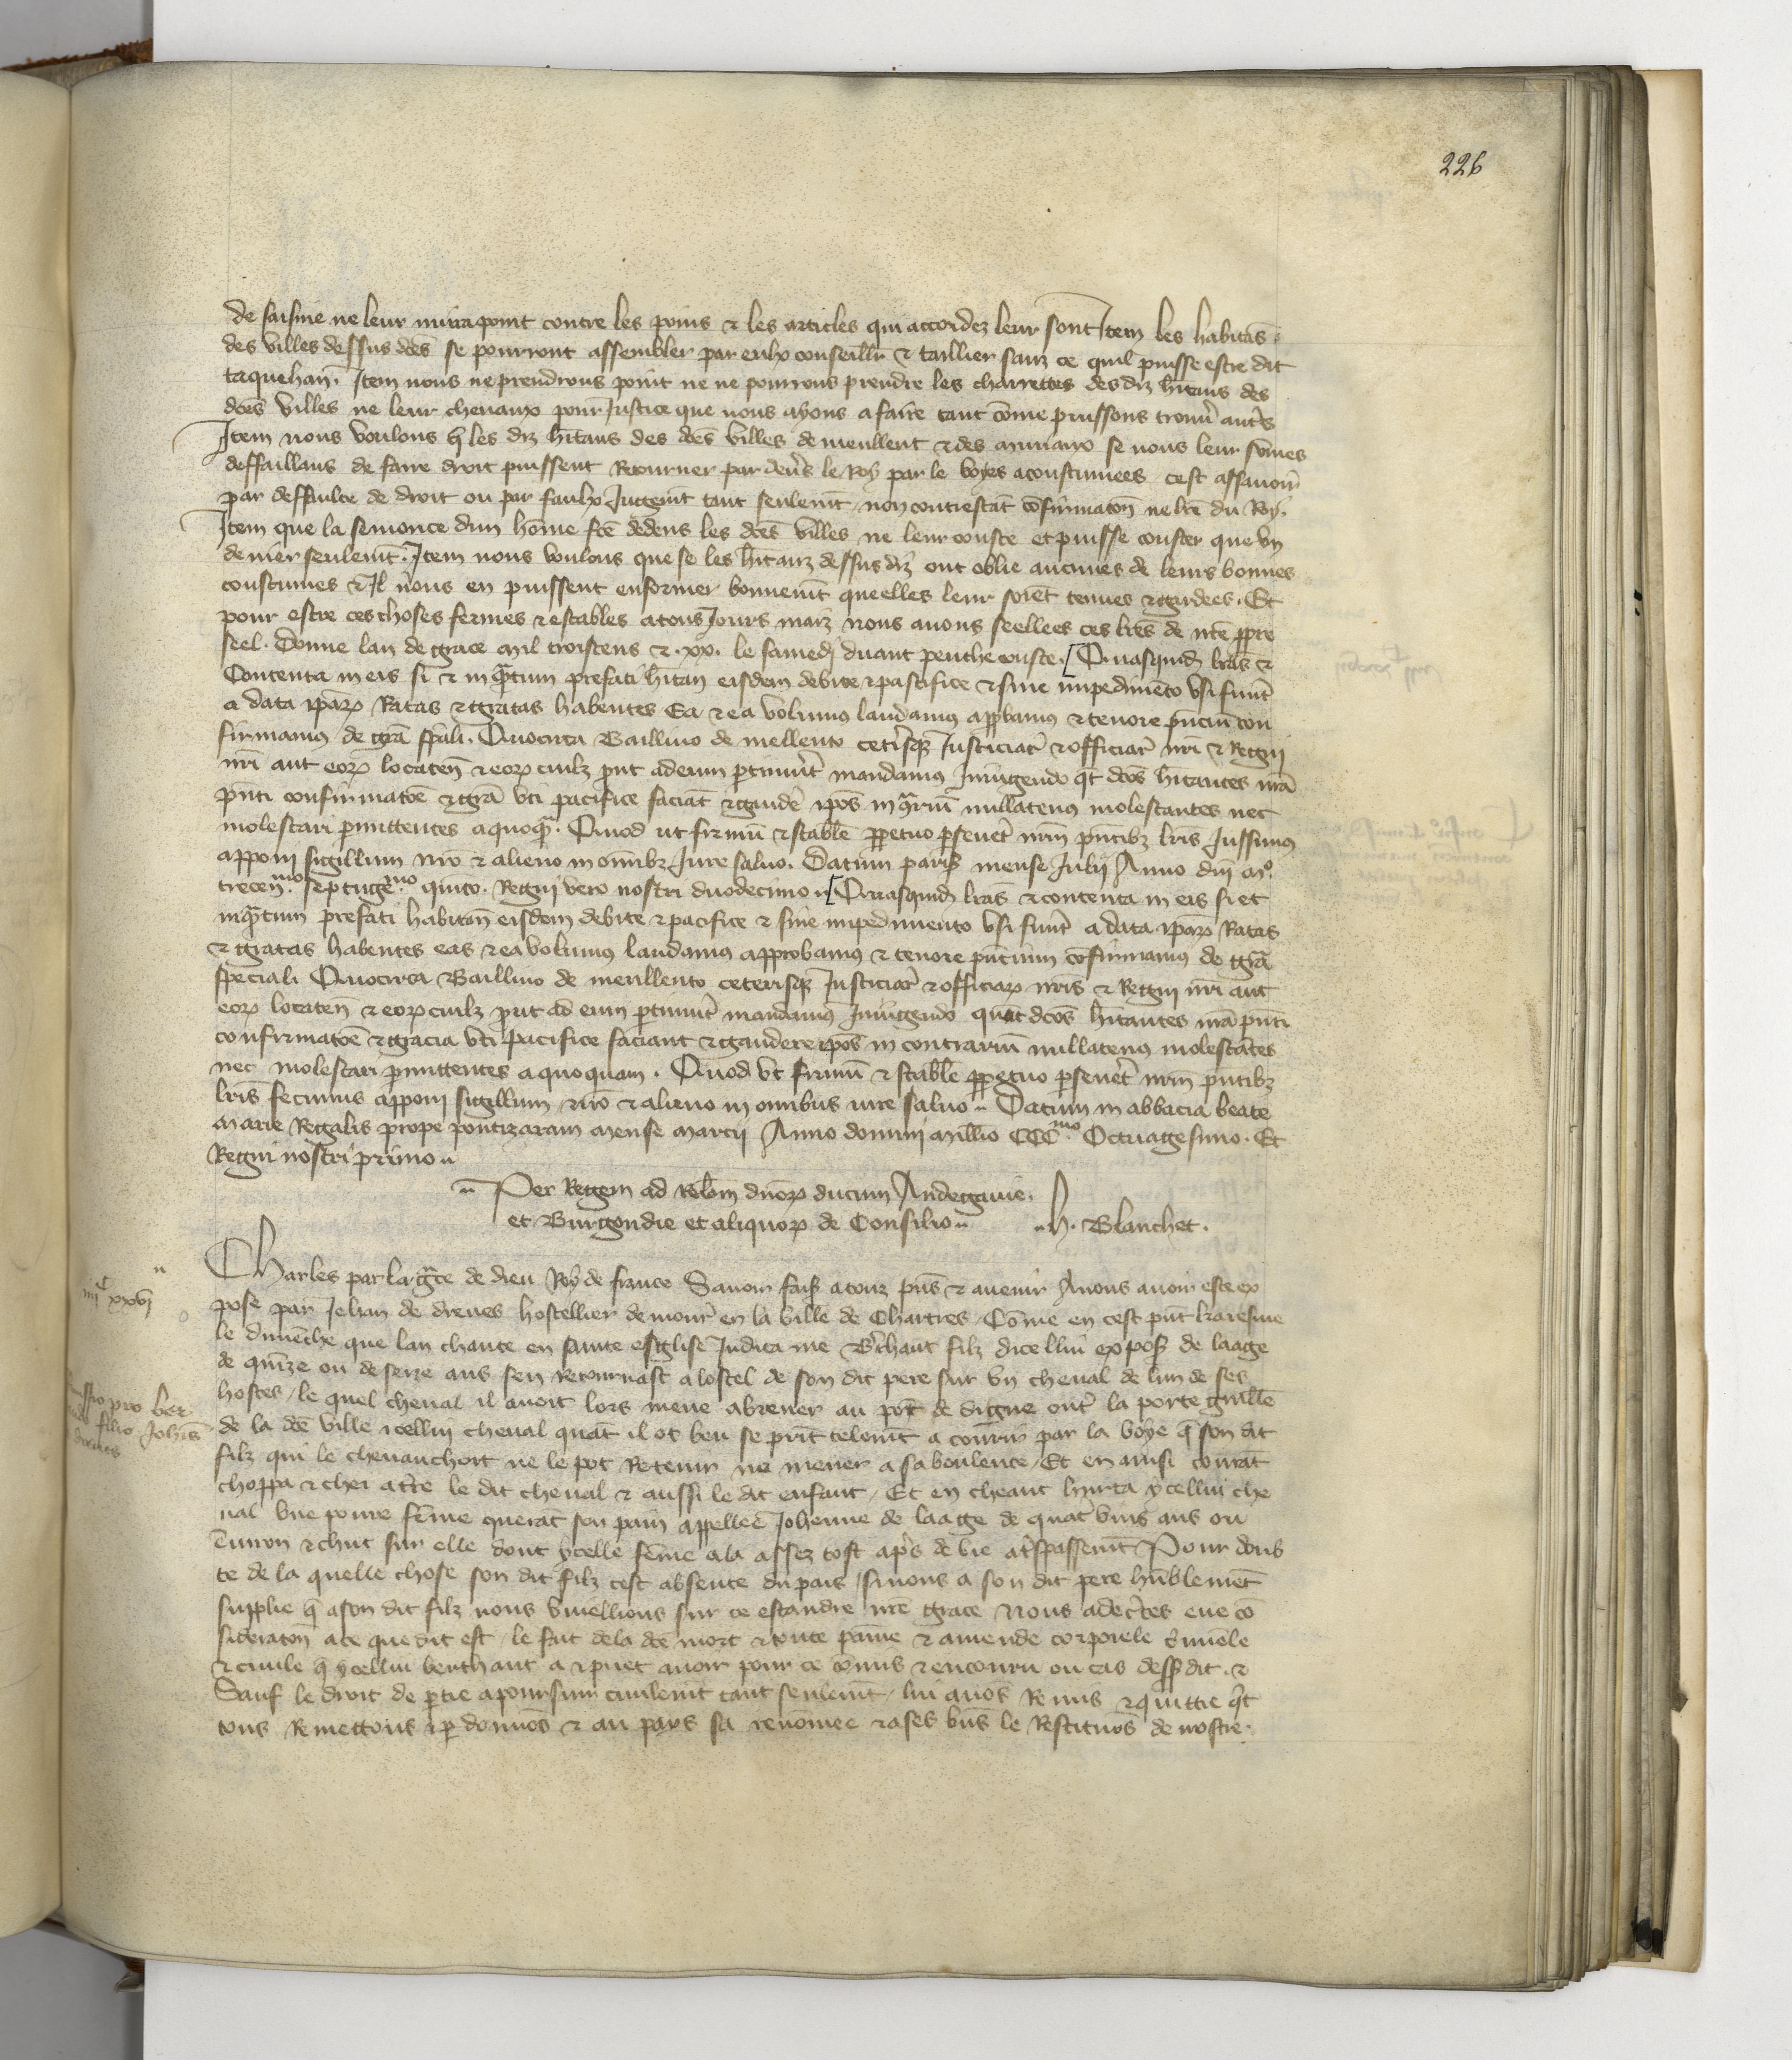 226
de saisine ne leur nuira point contre les poins & les articles qui accordez leur sont Item les habitās
des villes dessus dc̄es se pourront assembler par eulx conseillr̄ & taillier sanz ce quil puisse estre dit
taquehan. Item nous ne prendrons point ne ne pourrons prendre les charrettes des diz h̄itans des
dc̄es villes ne leur chevaux pour Justice que nous ayons a faire tant cōme puissons trouv̄ aut̄s
Item nous voulons q̄ les diz h̄itans des dc̄es villes de meullent & des mureaux se nous leur sōmes
deffaillans de faire droit puissent Retourner par dev̄s le Roy par le voyes acoustumees cest assavoir
par deffaulte de droit ou par faulx Jugemt̄ tant seulemt̄ / non contrestāt cōfirmatōn ne lr̄e du Roy.
Item que la semonce dun hōme fc̄e dedens les dc̄es villes ne leur couste et puisse couster que vn
denier seulemt̄. Item nous voulons que se les h̄itanz dessus diz ont oblie aucunes de leurs bonnes
coustumes & Il nous en puissent enformer bonnemt̄ queelles leur soiēt tenues & gardees. Et
pour estre ces choses fermes & estables a tous Jours maiz nous avons seellees ces lr̄es de nr̄e ppre
seel. Donne lan de grace mil troiscens & .xx. le samedi dvant penthecouste. [Quasquid̄ lr̄as &
Contenta in eis si & inq̄ntum prefati h̄itan̄ eisdem debite & pascifice & sine impedimēto vsi fuint̄
a data ip̄ar̄ Ratas & gratas habentes Ea & ea volumus laudamus app̄bamus & tenore pn̄ciū con
firmamus de grā sp̄ali. Quocirca Baillivo de mellento cet̄isq̄ Justiciar̄ & officiar̄ nr̄i & Regni
nr̄i aut eor̄ locaten̄ & eor̄ cuilz pt̄ ad eum ptinuīt mandamus Iniungendo qt̄ dc̄os h̄itantes nr̄a
pn̄ti confirmatōe & grā vti pacifice faciāt & gaudēe ip̄os in 9̄riū nullatenus molestantes nec
molestari pmittentes a quoq̄. Quod ut firmū & stabile ppetuo pseveret̄ nr̄m pn̄tibz lr̄is Jussimus
apponi sigillum nr̄o & alieno in oīnibz Jure salvo. Datum paris̄ mense Julii Anno dn̄i mo.
trecen.mo septuge.mo quinto. Regni vero nostri duodecimo .. [Quasquid̄ lr̄as & contenta in eis si et
inq̄ntum prefati habitan̄ eisdem debite & pacifice & sine impedimento vsi fuint̄ a data ip̄ar̄ Ratas
& gratas habentes eas & ea volumus laudamus approbamus & tenore pn̄cium cōfirmamus de grā
speciali Quocirca Baillivo de meullento ceterisq̄ Justiciar̄ & officiar̄ nr̄is & Regni nr̄i aut
eor̄ locaten̄ & eor̄ cuilz prut ad eum ptinuīt mandamus Iniungendo quat dc̄os h̄itantes nr̄a pn̄ti
confirmatōe & gracia vti pacifice faciant & gaudere ip̄os in contrariū nullatenus molestātes
nec molestari pmittentes a quoquam. Quod vt firmū & stabile ppetuo pseveret̄ nr̄m pn̄tibz
lr̄is fecimus apponi sigillum nr̄o & alieno in omnibus iure salvo .. Datum in abbacia beate
Marie Regalis prope pontizaram mense marcii Anno domini mill̄io CCCmo. Octuagesimo. Et
Regni nostri primo ..
.. Per Regem ad rel̄om dn̄or̄ ducum Andegavie.
et Burgondie et aliquor̄ de Consilio .. .. h. Blanchet.
Charles par la gr̄ce de dieu Roy de france Savoir fais̄ a touz pn̄s & avenir A nous avoir este ex
iiiic xxvi
pose par Jehan de dreues hostellier demour̄ en la ville de Chartres / Cōme en cest pn̄t karesme
le dimēche que lan chante en sainte esglise Judica me B̄thaut filz dicellui expos̄ de laage
de quīze ou de seize ans sen Retournast a lostel de son dit pere sur vn cheval de lun de ses
hostes / le quel cheval il avoit lors mene abrever au pōt de digne out̄ la porte guill̄e
Remissio pro ber
filio Joh̄is
de la dc̄e ville icellui cheval quāt il ot beu se prīt telemt̄ a courir par la voye q̄ son dit
filz qui le chevauchoit ne le pot Retenir ne mener a sa voulente / Et en ainsi courāt
choppa & chei a tr̄e le dit cheval & aussi le dit enfant / Et en cheant hurta ycellui che
val vne povre fēme querāt son pain appellee Jehenne de laage de quat̄ vins ans ou
ēuiron & chut sur elle dont ycelle fēme ala assez tost ap̄s de vie a t̄spassemt̄ Pour doub
te de la quelle chose son dit filz cest absente du pais / si nous a son dit pere hūblemēt
supplie q̄ a son dit filz nous vueillions sur ce estandre nr̄e grace Nous adec̄tes eue cō
sideratōn a ce que dit est / le fait de la dc̄e mort & toute paine & amende corporele c̄minele
& civile q̄ ycellui berthaut a & puet avoir pour ce cōmis & encouru ou cas dess̄dit. &
Sauf le droit de ptie a poursuir civilemt̄ tant seulemt̄ / lui avōs Remis & quittie q̄t
tons Remettons & pdonnōs & au pays sa renōmee & a ses biēs le Restituōs de nostre.